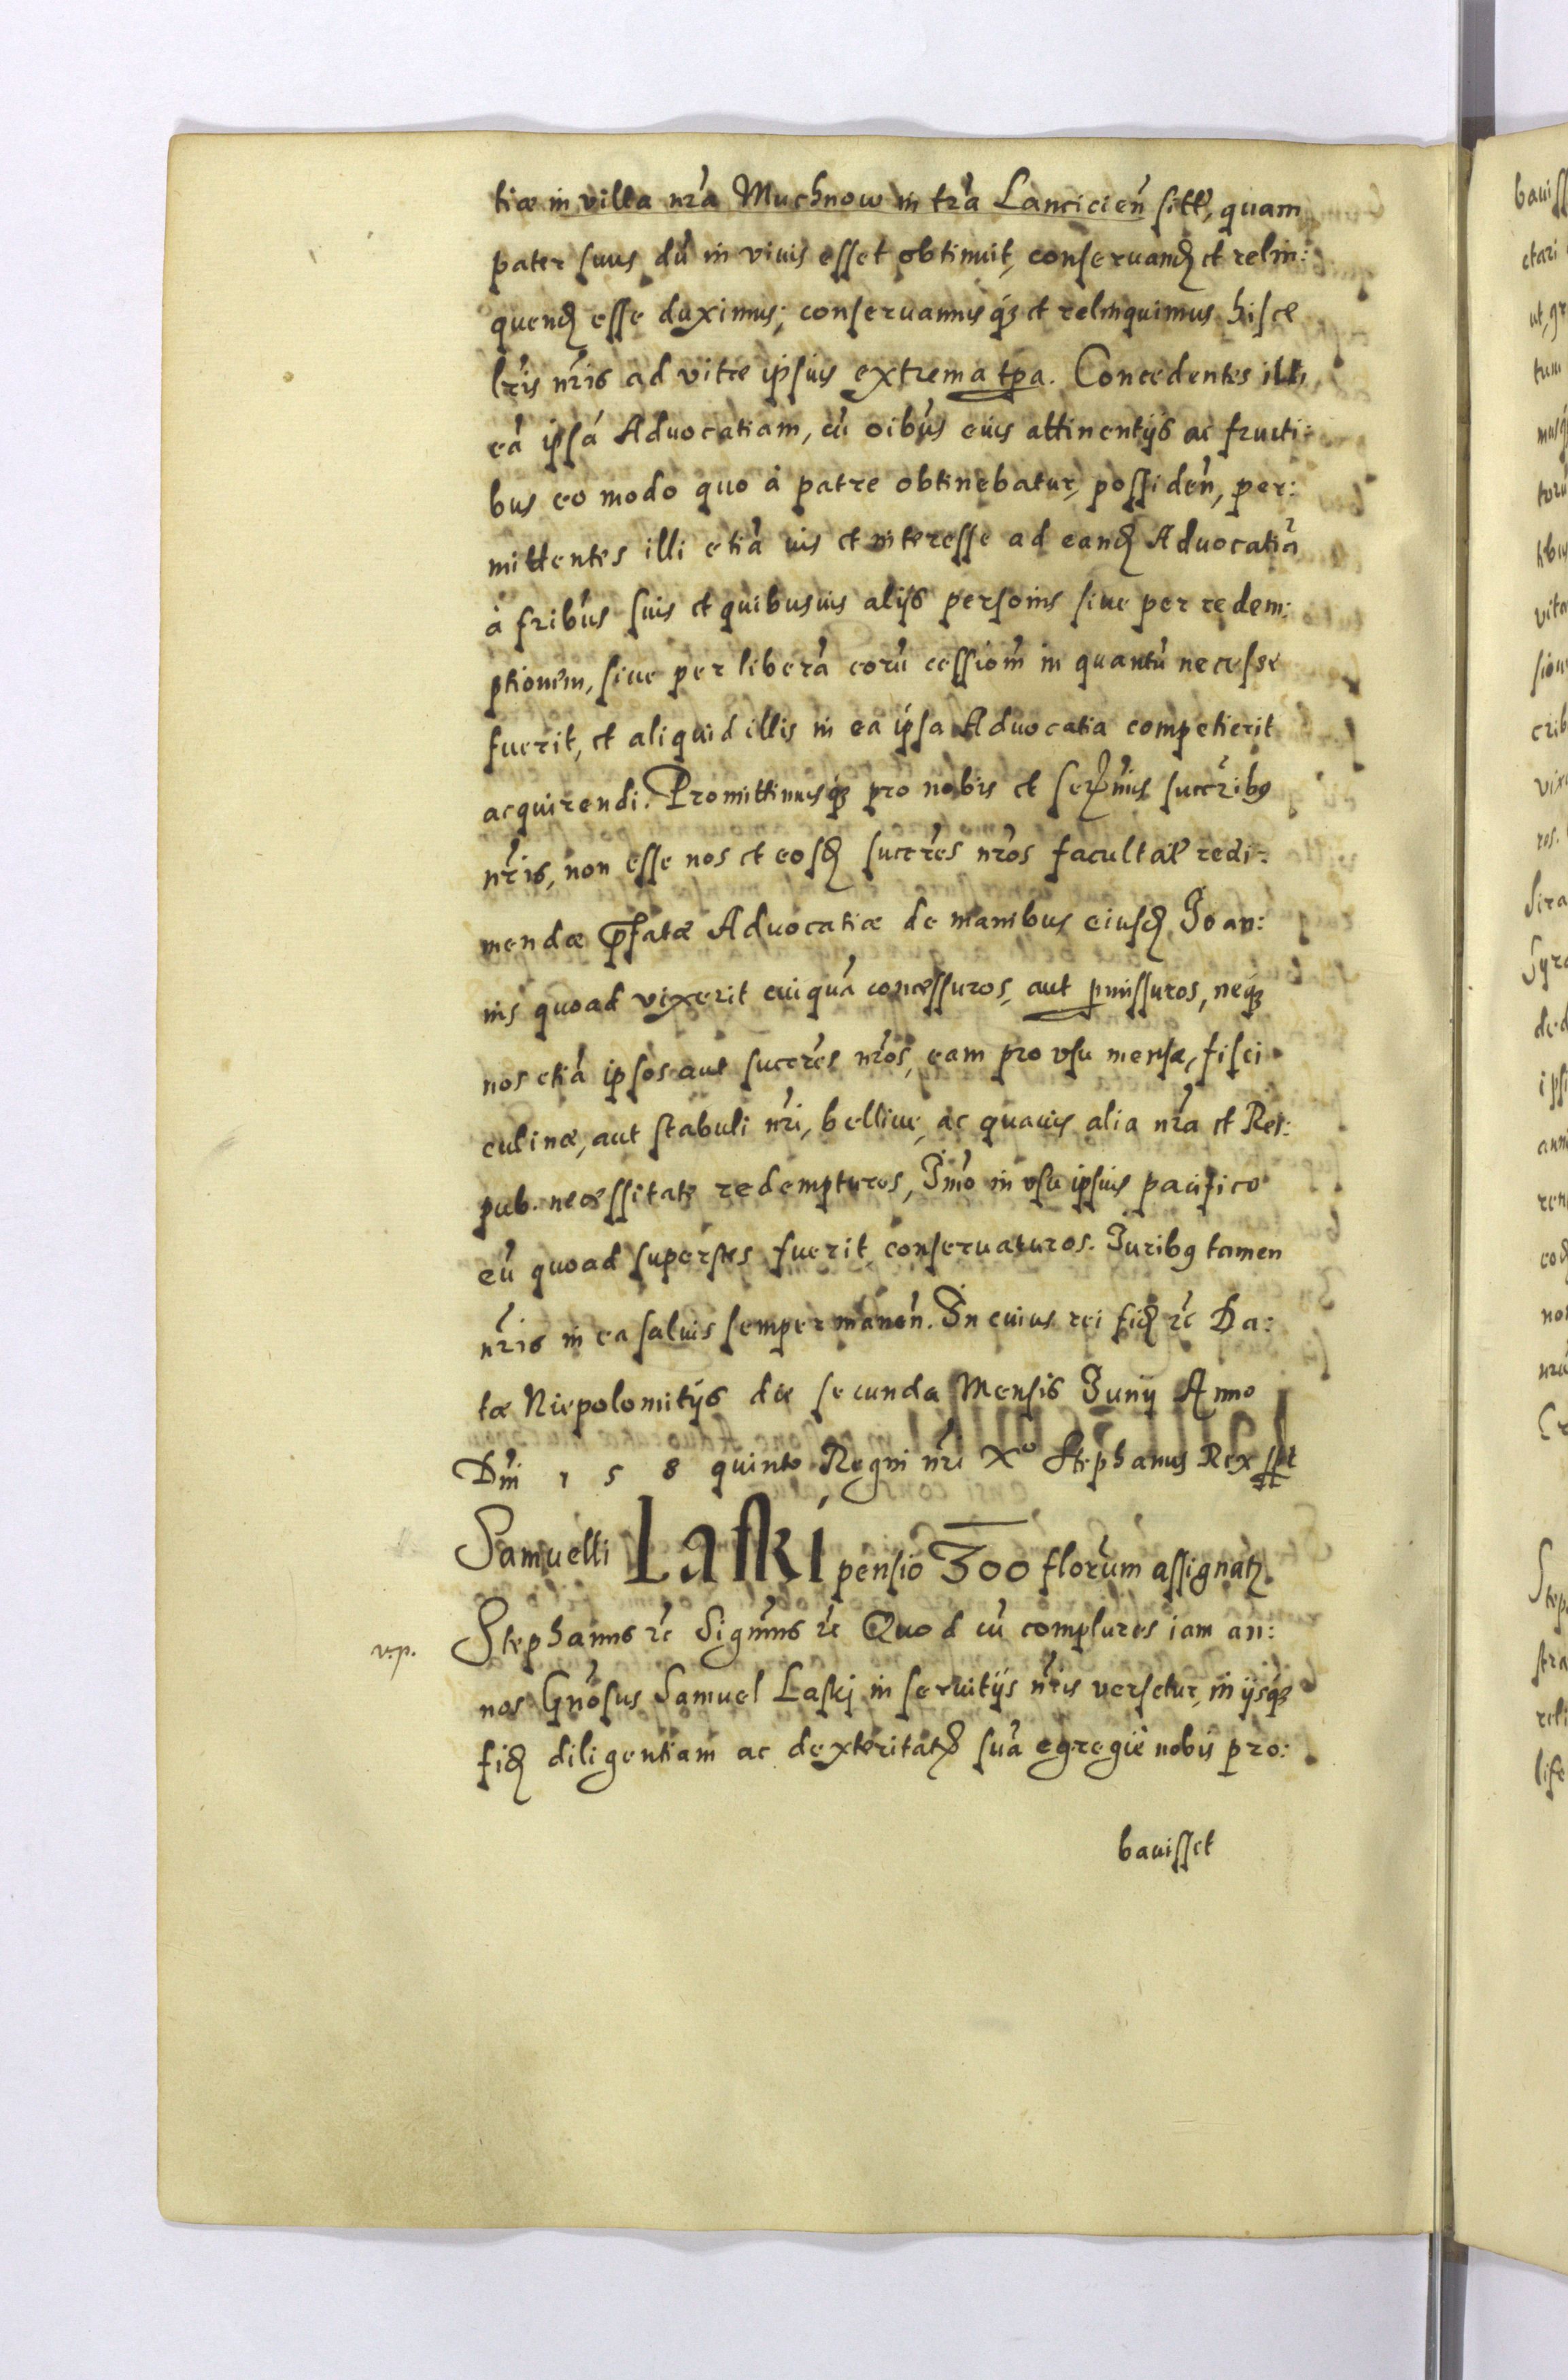 tiæ in villa nr̃a Muchnow in tr̃a Lancicien̄ sitt̃, quam
pater suus dū in viuis esset obtinuit, conseruandꝫ et relin:
quendꝫ esse duximus; conseruamusqꝫ et relinquimus hisce
lr̃is nr̃is ad vitæ ipsius extrema tp̃a. Concedentes illi
eā ipsā Aduocatiam, cū oibus eius attinentijs ac fructi:
bus eo modo quo à patre obtinebatur, possiden̄, per:
mittentes illi etiā ius et interesse ad eandꝫ Aduocatiā
à fribus suis et quibusuis alijs personis siue per redem:
ptionem, siue per liberā eorū cessionē in quantū necesse
fuerit, et aliquid illis in ea ipsa Aduocatia competierit
acquirendi. Promittimusqꝫ pro nobis et Ser̃mis succr̃ibꝯ
nr̃is, non esse nos et eosdꝫ succr̃es nr̃os facultatē redi:
mendæ p̃fatæ Aduocatiæ de manibus eiusdꝫ Joan:
nis quoad vixerit cuiquā concessuros, aut ꝑmissuros, neqꝫ
nos etiā ipsos aut succr̃es nr̃os, eam pro vsu mensæ, fisci
culinæ, aut stabuli nr̃i, belliue, ac quauis alia nr̃a et Rei:
pub. necessitate redempturos, Imo in vsu ipsius pacifico
eū quoad superstes fuerit conseruaturos. Juribꝯ tamen
nr̃is in ea saluis semper manen̄. In cuius rei fidꝫ ꝛc̃ Da:
tæ Niepolomitijs die secunda Mensis Junij Anno
Dn̄i 1 5 8 quinto Regni nr̃i Xº Stephanus Rex sst
Samuelli Laski pensio 300 florum assignatꝫ
v.p.
Stephanus ꝛc̃ Signm̃us ꝛc̃ Quod cū complures iam an:
nos Gnōsus Samuel Laskj in seruitijs nr̃is versetur, in ijsqꝫ
fidꝫ diligentiam ac dexteritatꝫ suā egregiè nobis pro:
bauisset